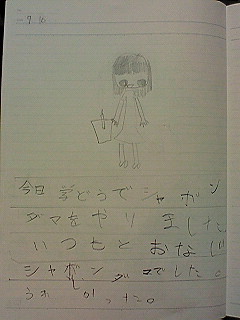 7 16
今日 学どうで シャボン
ダマをやりました
いつもと おなじ
シャボン ダマでした。
うれしかった。